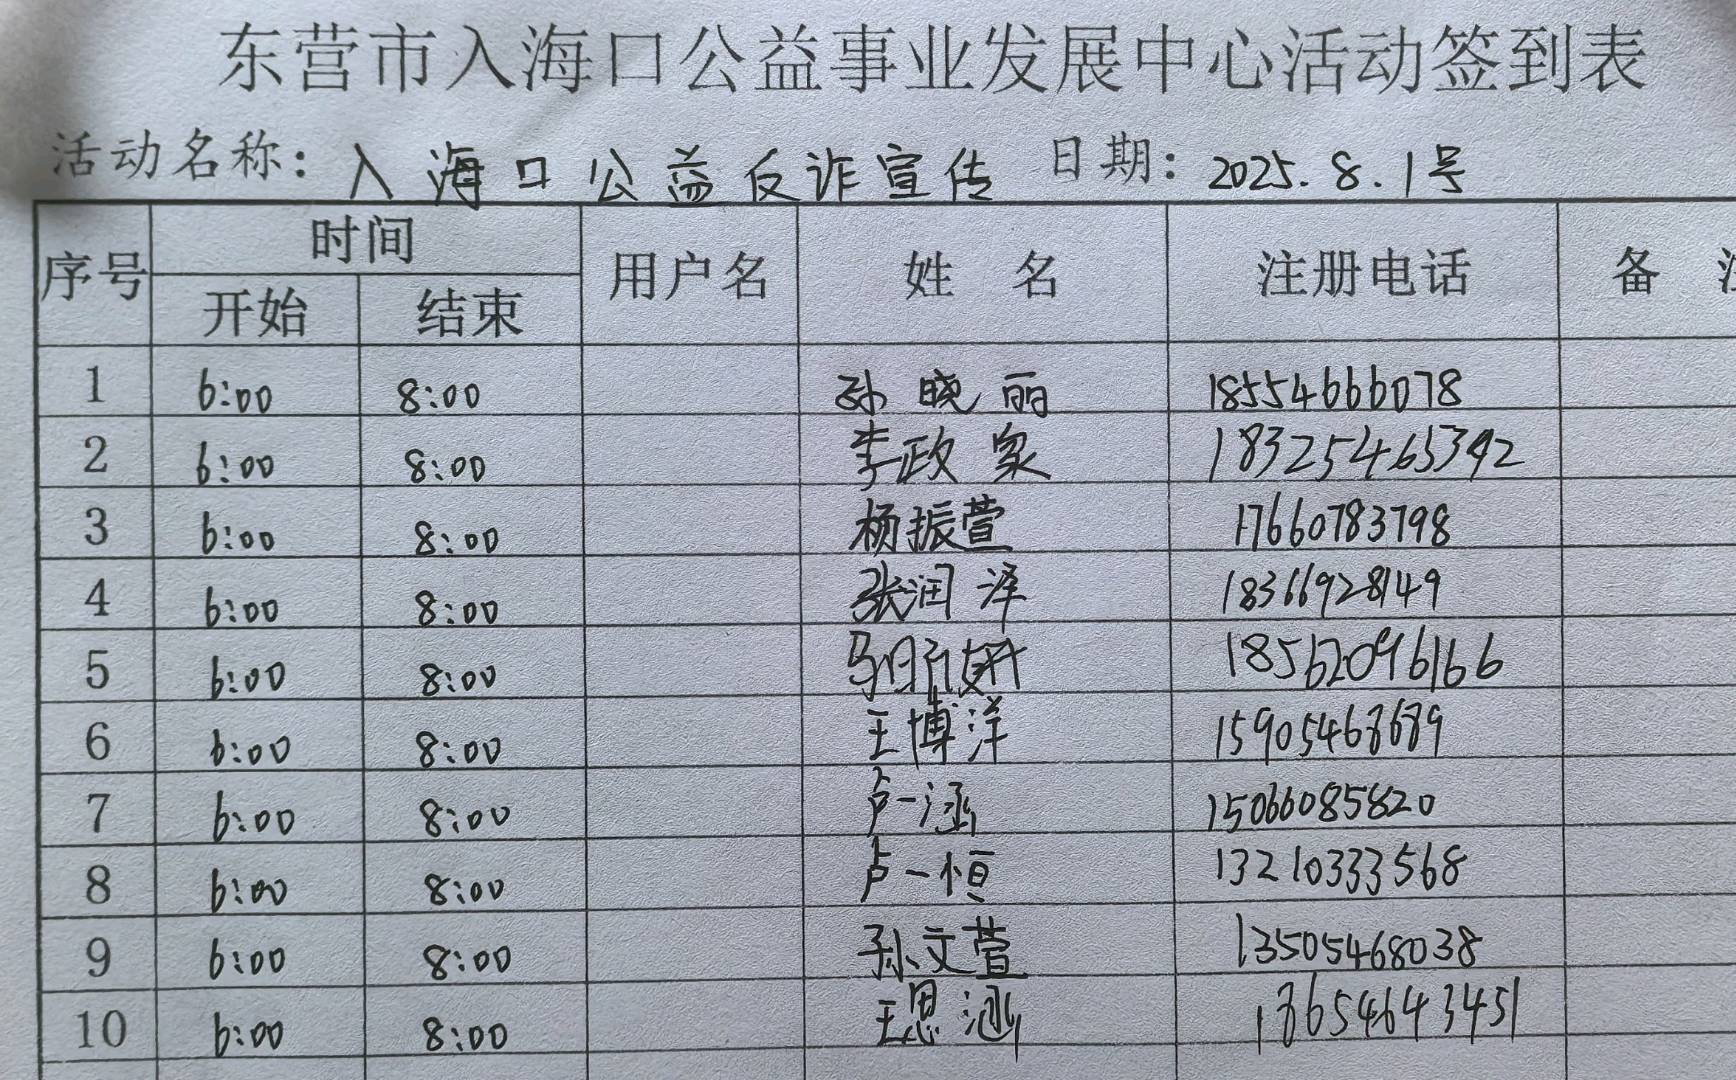 东营市入海口公益事业发展中心活动签到表
活动名称：入海口公益反诈宣传 日期：2025.8.1号
序号 时间 用户名 姓名 注册电话 备
开始 结束
1 6:00 8:00 孙晓丽 18554666078
2 6:00 8:00 李政家 18325465392
3 6:00 8:00 杨振萱 17660783798
4 6:00 8:00 张润泽 18366928149
5 6:00 8:00 18562096166
6 6:00 8:00 王博洋 15905468689
7 6:00 8:00 卢一涵 15066085820
8 6:00 8:00 卢一恒 13210333568
9 6:00 8:00 孙文萱 13505468038
10 6:00 8:00 王恩涵 18654643451